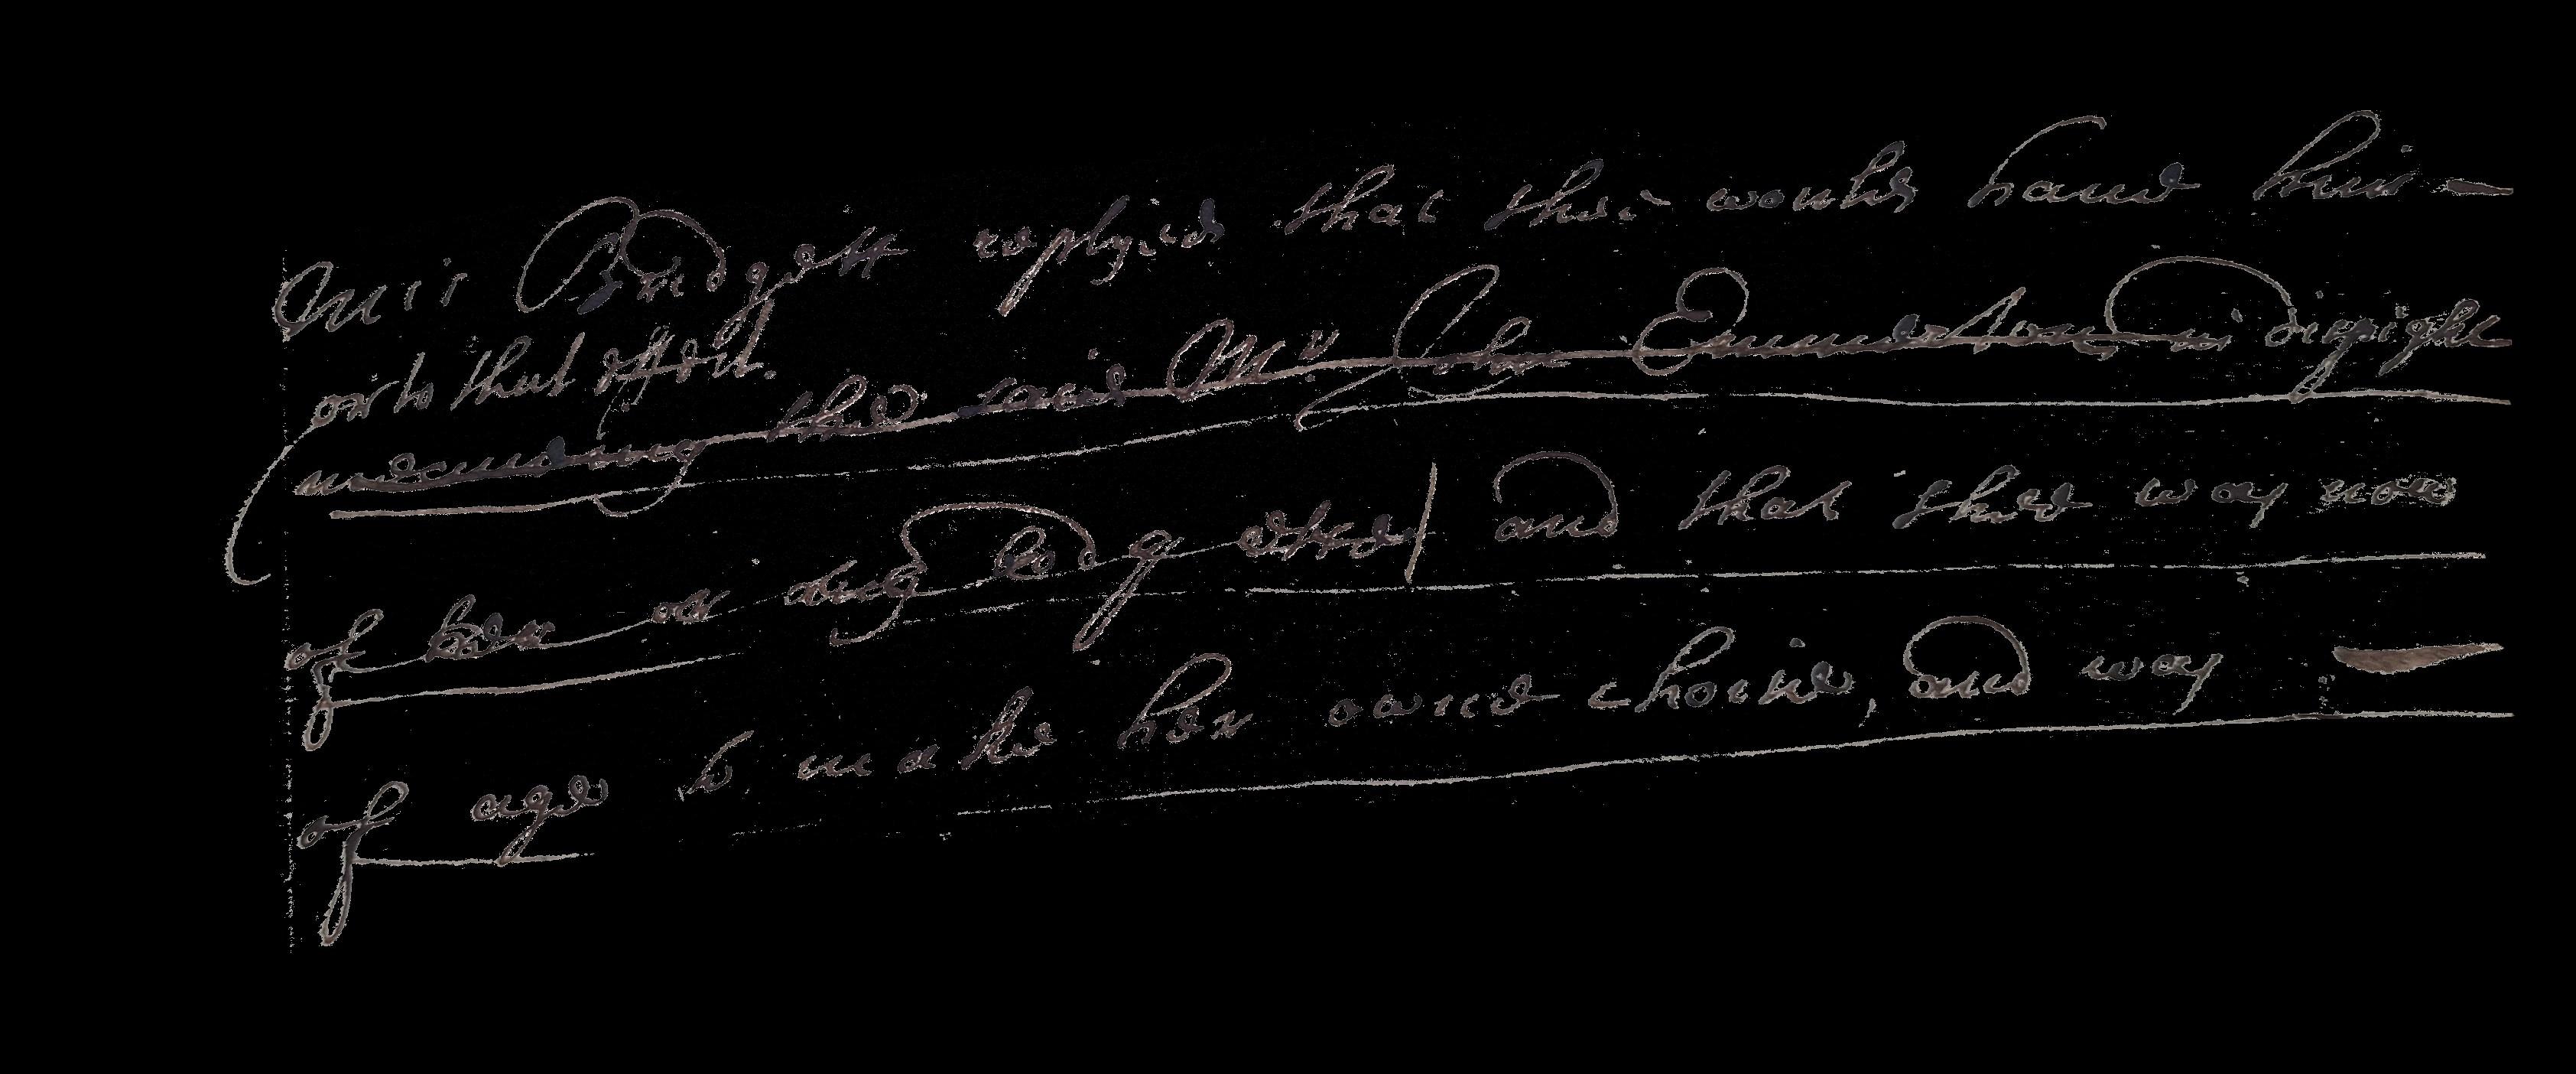 Mis Bridgett replyed that shee would have him
or to that effect.
meaning the said Mr John Emmerston in dispight
of her or any body else and that shee was now
of age to make her owne choice, and was